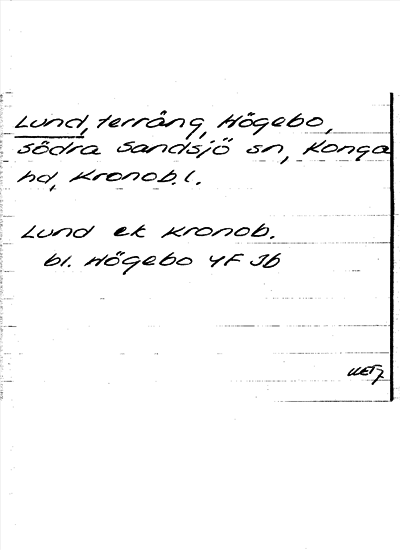 Lund, terräng, Högebo,
södra Sandsjö sn, Konga
hd, Kronob.l.
Lund ek Kronob.
bl. Högebo 4F Jb